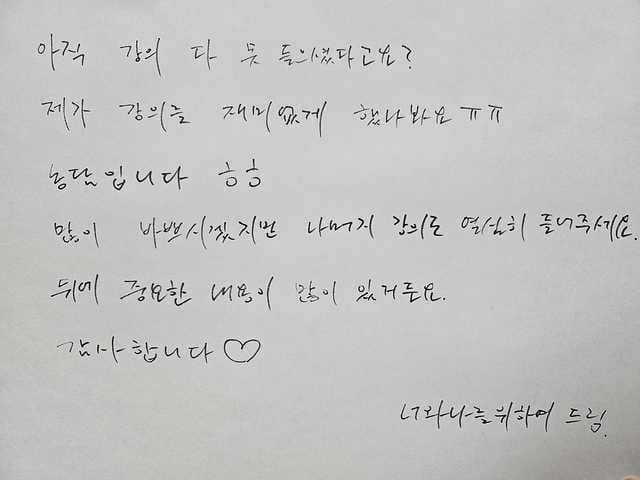 아직 강의 다 못 들으셨다고요?
제가 강의를 재미없게 했나봐요 ㅠㅠ
농담입니다 ㅎㅎ
많이 바쁘시겠지만 나머지 강의도 열심히 들어주세요.
뒤에 중요한 내용이 많이 있거든요.
감사합니다♡
너와나를위하여 드림.